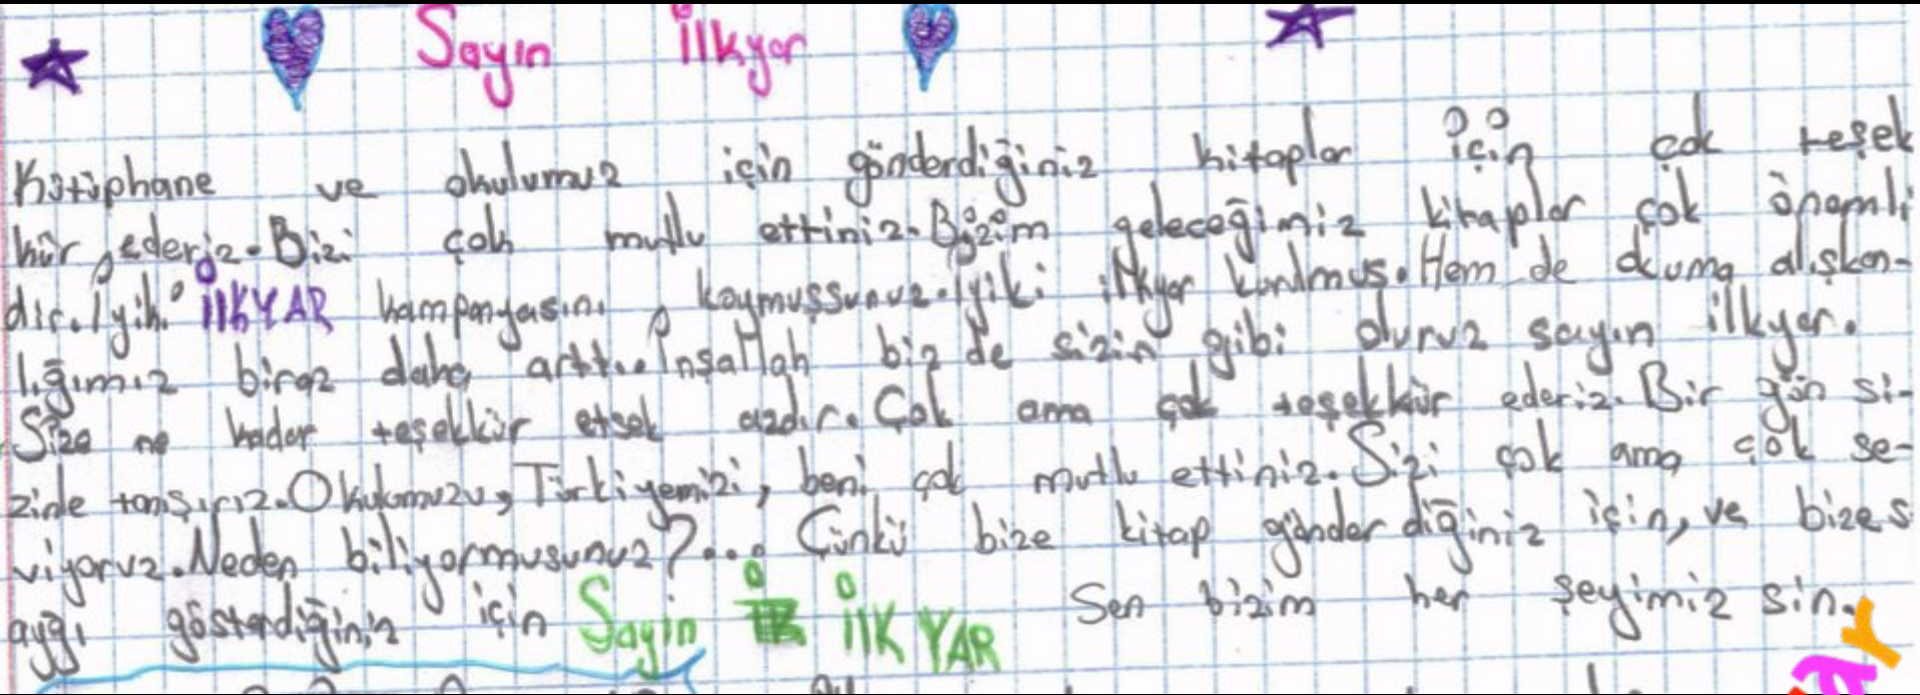 Sayın İlkyar
Kütüphane ve okulumuz için gönderdiğiniz kitaplar için çok teşek
kür ederiz. Bizi çok mutlu ettiniz. Bizim geleceğimiz kitaplar çok önemli
dir. İyiki İLKYAR kampanyasını koymuşsunuz. İyiki ilkyar kurulmuş. Hem de okuma alışkan-
lığımız biraz daha arttı. İnşallah biz de sizin gibi oluruz sayın ilkyar.
Size ne kadar teşekkür etsek azdır. Çok ama çok teşekkür ederiz. Bir gün si-
zinle tanışırız. Okulumuzu, Türkiyemizi, beni çok mutlu ettiniz. Sizi çok ama çok se-
viyoruz. Neden biliyormusunuz?... Çünkü bize kitap gönderdiğiniz için, ve bize s
aygı gösterdiğiniz için Sayin İLK YAR Sen bizim her şeyimiz sin.